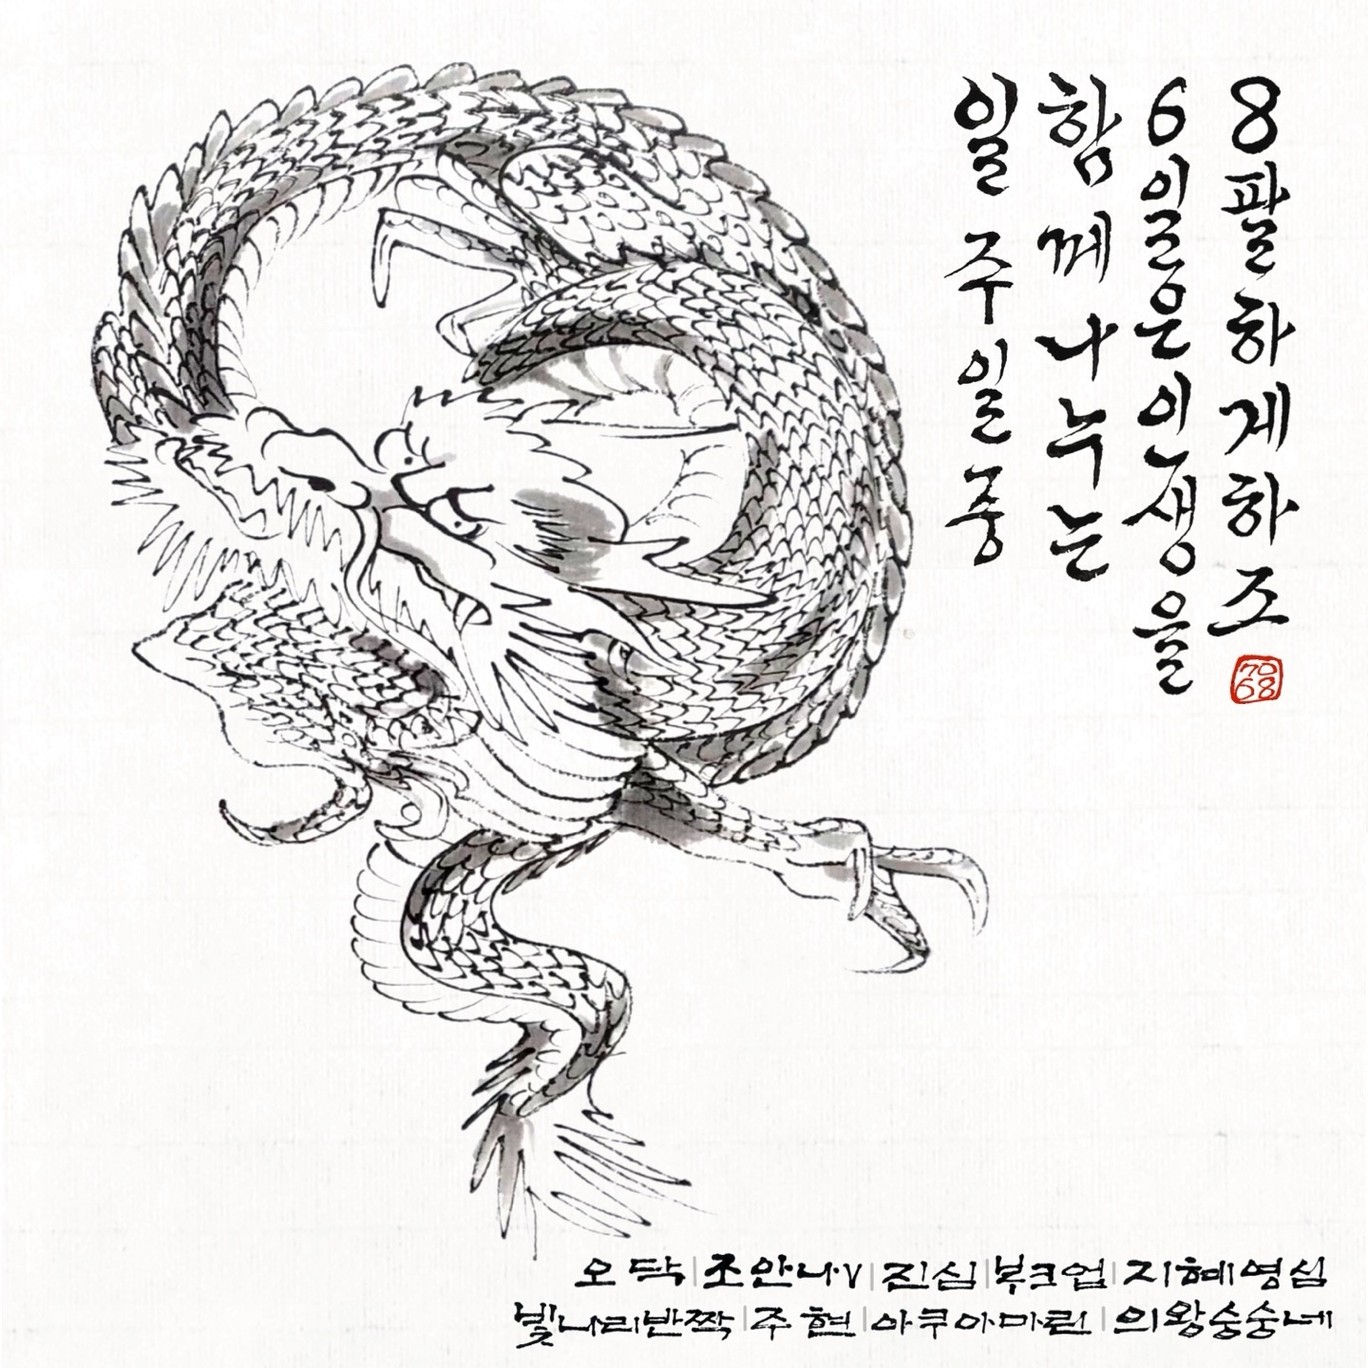 일주일중
함께나누는
6일은인생을
8팔하게하조
70
68
오닥|조안나.V|진심|북크업|지혜영심
빛나리반짝|주현|아쿠아마린|의왕숭숭네